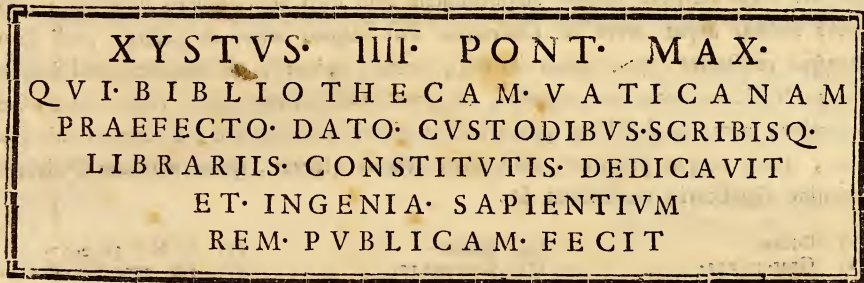 XYSTVS· IIII· PONT· MAX·
QVI· BIBLIOTHECAM· VATICANAM
PRAEFECTO· DATO· CVSTODIBVS·SCRIBISQ·
LIBRARIIS· CONSTITVTIS· DEDICAVIT
ET· INGENIA· SAPIENTIVM
REM· PVBLICAM· FECIT